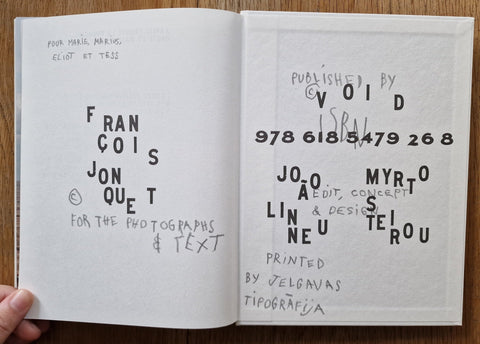 POUR MARIE, MARIUS,
ELIOT ET TESS
FRAN
ÇOIS
JON
QUET
©
FOR THE PHOTOGRAPHS
& TEXT
PUBLISHED BY
© VOID
ISBN
978 618 5479 26 8
JOÃO MYRTO
EDIT, CONCEPT
& DESIGN
LINNEU STEIROU
PRINTED
BY JELGAVAS
TIPOGRĀFIJA